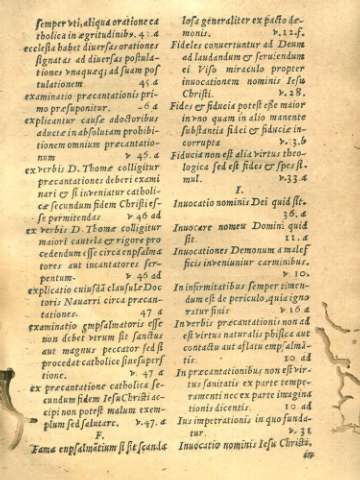 semper vti, aliqua oratione ca
tholica in ægritudinibꝰ. 4. a
ecclesia habet diuersas orationes
signatas ad diuersas postula-
tiones vnaquæq; ad suam pos
tulationem 45. a
examinatio præcantationis pri-
mo præsuponitur. 6 a
explicantur causæ a doctoribus
aductæ in absolutam prohibi-
tionem omnium præcantatio-
num v 46. a
ex verbis D. Thomæ colligitur
præcantationes deberi exami
nari & si inveniatur catholi-
cæ secundum fidem Christi es-
se permitendas v 46 ad
ex verbis D. Thomæ colligitur
maiori cautela & rigore pro
cedendum esse circa enpsalma
tores aut incantatores ser-
pentum- v 46 ad
explicatio cuiusdã clausulæ Doc
toris Nauarri circa præcan-
tationes. 47 a
examinatio ẽmpsalmatoris esse
non debet vtrum sit sanctus
aut magnus peccator sed si
procedat catholice sine supers
tione. v. 47 a
ex præcantatione catholica se-
cundum fidem Iesu Christi ac-
cipi non potest malum exem-
plum sed salutare. v. 47. a
F.
Fama enpsalmātium si sit scanda
losa generaliter ex pacto dæ-
monis. v. 12. f.
Fideles conuertuntur ad Deum
ad laudandum & seruiendum
ei Viso miraculo propter
inuocationem nominis Iesu
Christi. v. 28.
Fides & fiducia potest esse maior
in vno quam in alio manente
substancia fidei & fiduciæ in-
corrupta v. 3. b
Fiducia non est alia virtus theo-
logica sed est fides & spes si-
mul. v. 33. a
I.
Inuocatio nominis Dei quid sit.
36. a
Inuocare nomen Domini quid
sit 11. a
Inuocationes Demonum a malef
ficis inveniuniur carminibus.
v. 10.
In infirmitatibus semper timen-
dum est de periculo, quia igno
ratur finis v 16 a
In verbis præcantationis non ad
est virtus naturalis phisica aut
contactu aut aflatu empsalmā-
tis. 10 ad
In præcantationibus non est vir-
tus sanitatis ex parte tempe-
ramenti nec ex parte imagina
tionis dicentis. 10 ad
Ius impetrationis in quo funda-
tur. v. 31
Inuocatio nominis Iesu Christi,